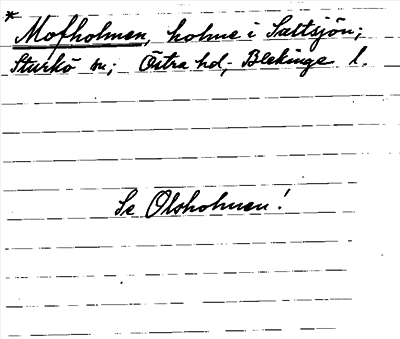 * Mofholmen, holme i Saltsjön;
Sturkö sn; Östra hd, Blekinge l.
Se Olsholmen!